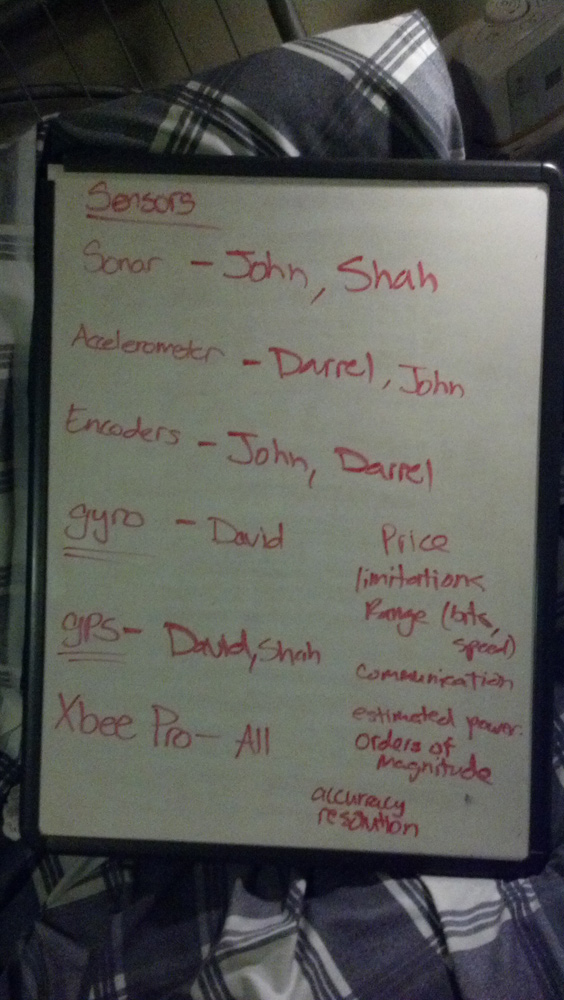 Sensors
Sonar - John, Shah
Accelerometer - Darrel, John
Encoders - John, Darrel
gyro - David
gps- David, Shah
Xbee Pro- All
Price
limitations
Range (bits,
speed)
communication
estimated power.
Orders of
Magnitude
accuracy
resolution